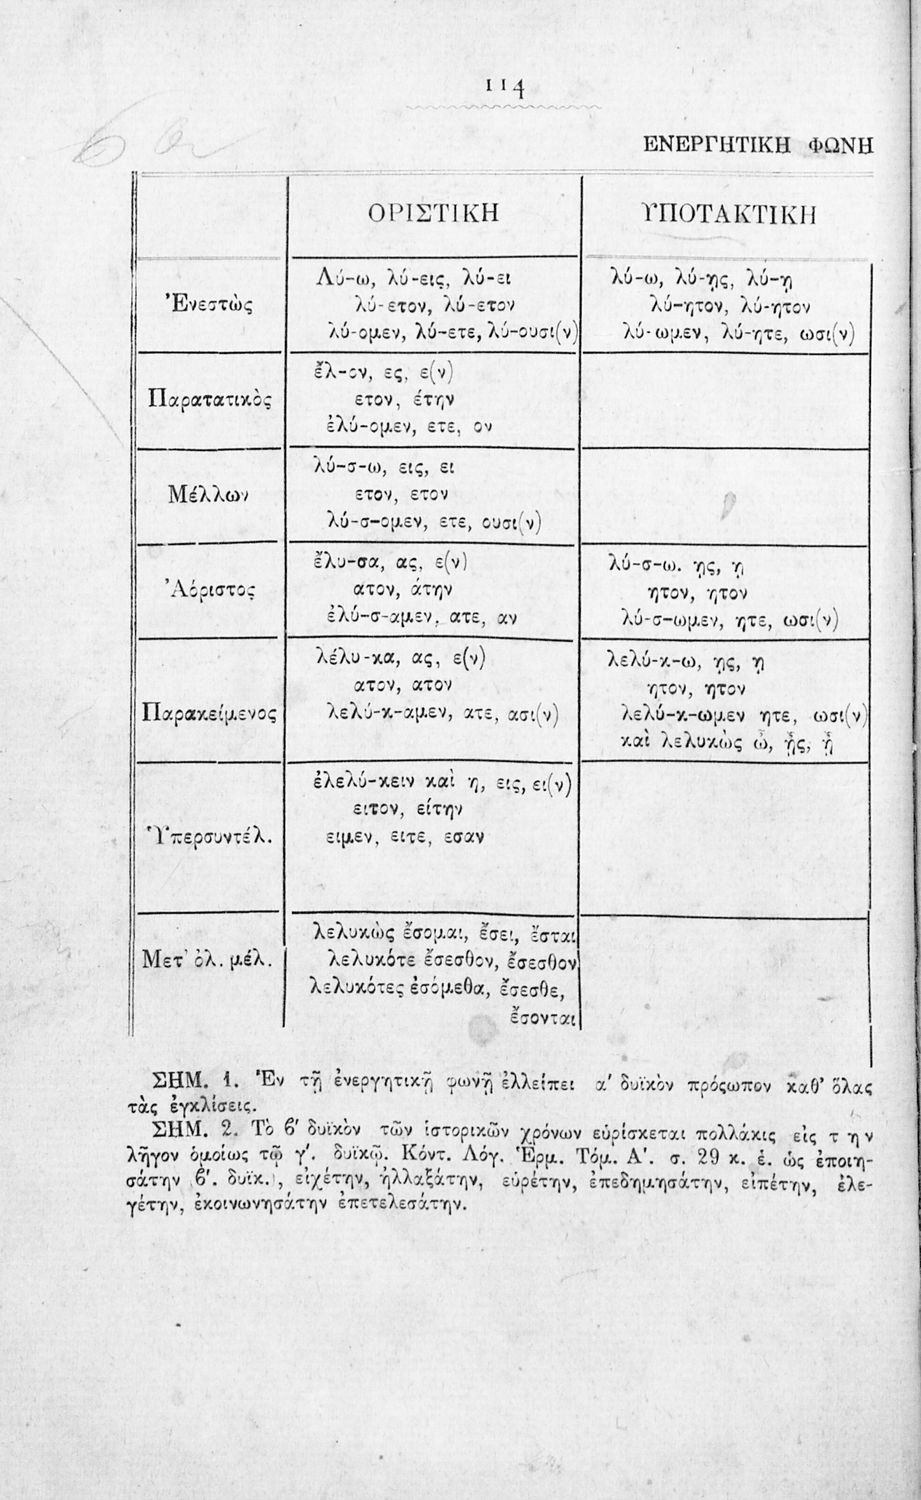 114
ΕΝΕΡΓΗΤΙΚΗ ΦΩΝΗ
ΟΡΙΣΤΙΚΗ ΥΠΟΤΑΚΤΙΚΗ
Ἐνεστὼς
Λύ-ω, λύ-εις, λύ-ει
λύ-ετον, λύ-ετον
λύ-ομεν, λύ-ετε, λύ-ουσι(ν)
λύ-ω, λύ-ῃς, λύ-ῃ
λύ-ητον, λύ-ητον
λύ-ωμεν, λύ-ητε, ωσι(ν)
Παρατατικὸς
ἔλ-ον, ες, ε(ν)
ετον, έτην
ἐλύ-ομεν, ετε, ον
Μέλλων
λύ-σ-ω, εις, ει
ετον, ετον
λύ-σ-ομεν, ετε, ουσι(ν)
Ἀόριστος
ἔλυ-σα, ας, ε(ν)
ατον, άτην
ἐλύ-σ-αμεν, ατε, αν
λύ-σ-ω. ῃς, ῃ
ητον, ητον
λύ-σ-ωμεν, ητε, ωσι(ν)
Παρακείμενος
λέλυ-κα, ας, ε(ν)
ατον, ατον
λελύ-κ-αμεν, ατε, ασι(ν)
λελύ-κ-ω, ῃς, ῃ
ητον, ητον
λελύ-κ-ωμεν ητε, ωσι(ν)
καὶ λελυκὼς ὦ, ᾖς, ᾖ
Ὑπερσυντέλ.
ἐλελύ-κειν καὶ η, εις, ει(ν)
ειτον, είτην
ειμεν, ειτε, εσαν
Μετ' ὀλ. μέλ.
λελυκὼς ἔσομαι, ἔσει, ἔσται
λελυκότε ἔσεσθον, ἔσεσθον
λελυκότες ἐσόμεθα, ἔσεσθε,
ἔσονται
ΣΗΜ. 1. Ἐν τῇ ἐνεργητικῇ φωνῇ ἐλλείπει α' δυϊκὸν πρόςωπον καθ' ὅλας
τὰς ἐγκλίσεις.
ΣΗΜ. 2. Τὸ β' δυϊκὸν τῶν ἱστορικῶν χρόνων εὑρίσκεται πολλάκις εἰς την
λῆγον ὁμοίως τῷ γ'. δυϊκῷ. Κόντ. Λόγ. Ἑρμ. Τόμ. Α'. σ. 29 κ. ἑ. ὡς ἐποιη-
σάτην β'. δυϊκ.), εἰχέτην, ἠλλαξάτην, εὑρέτην, ἐπεδημησάτην, εἰπέτην, ἐλε-
γέτην, ἐκοινωνησάτην ἐπετελεσάτην.